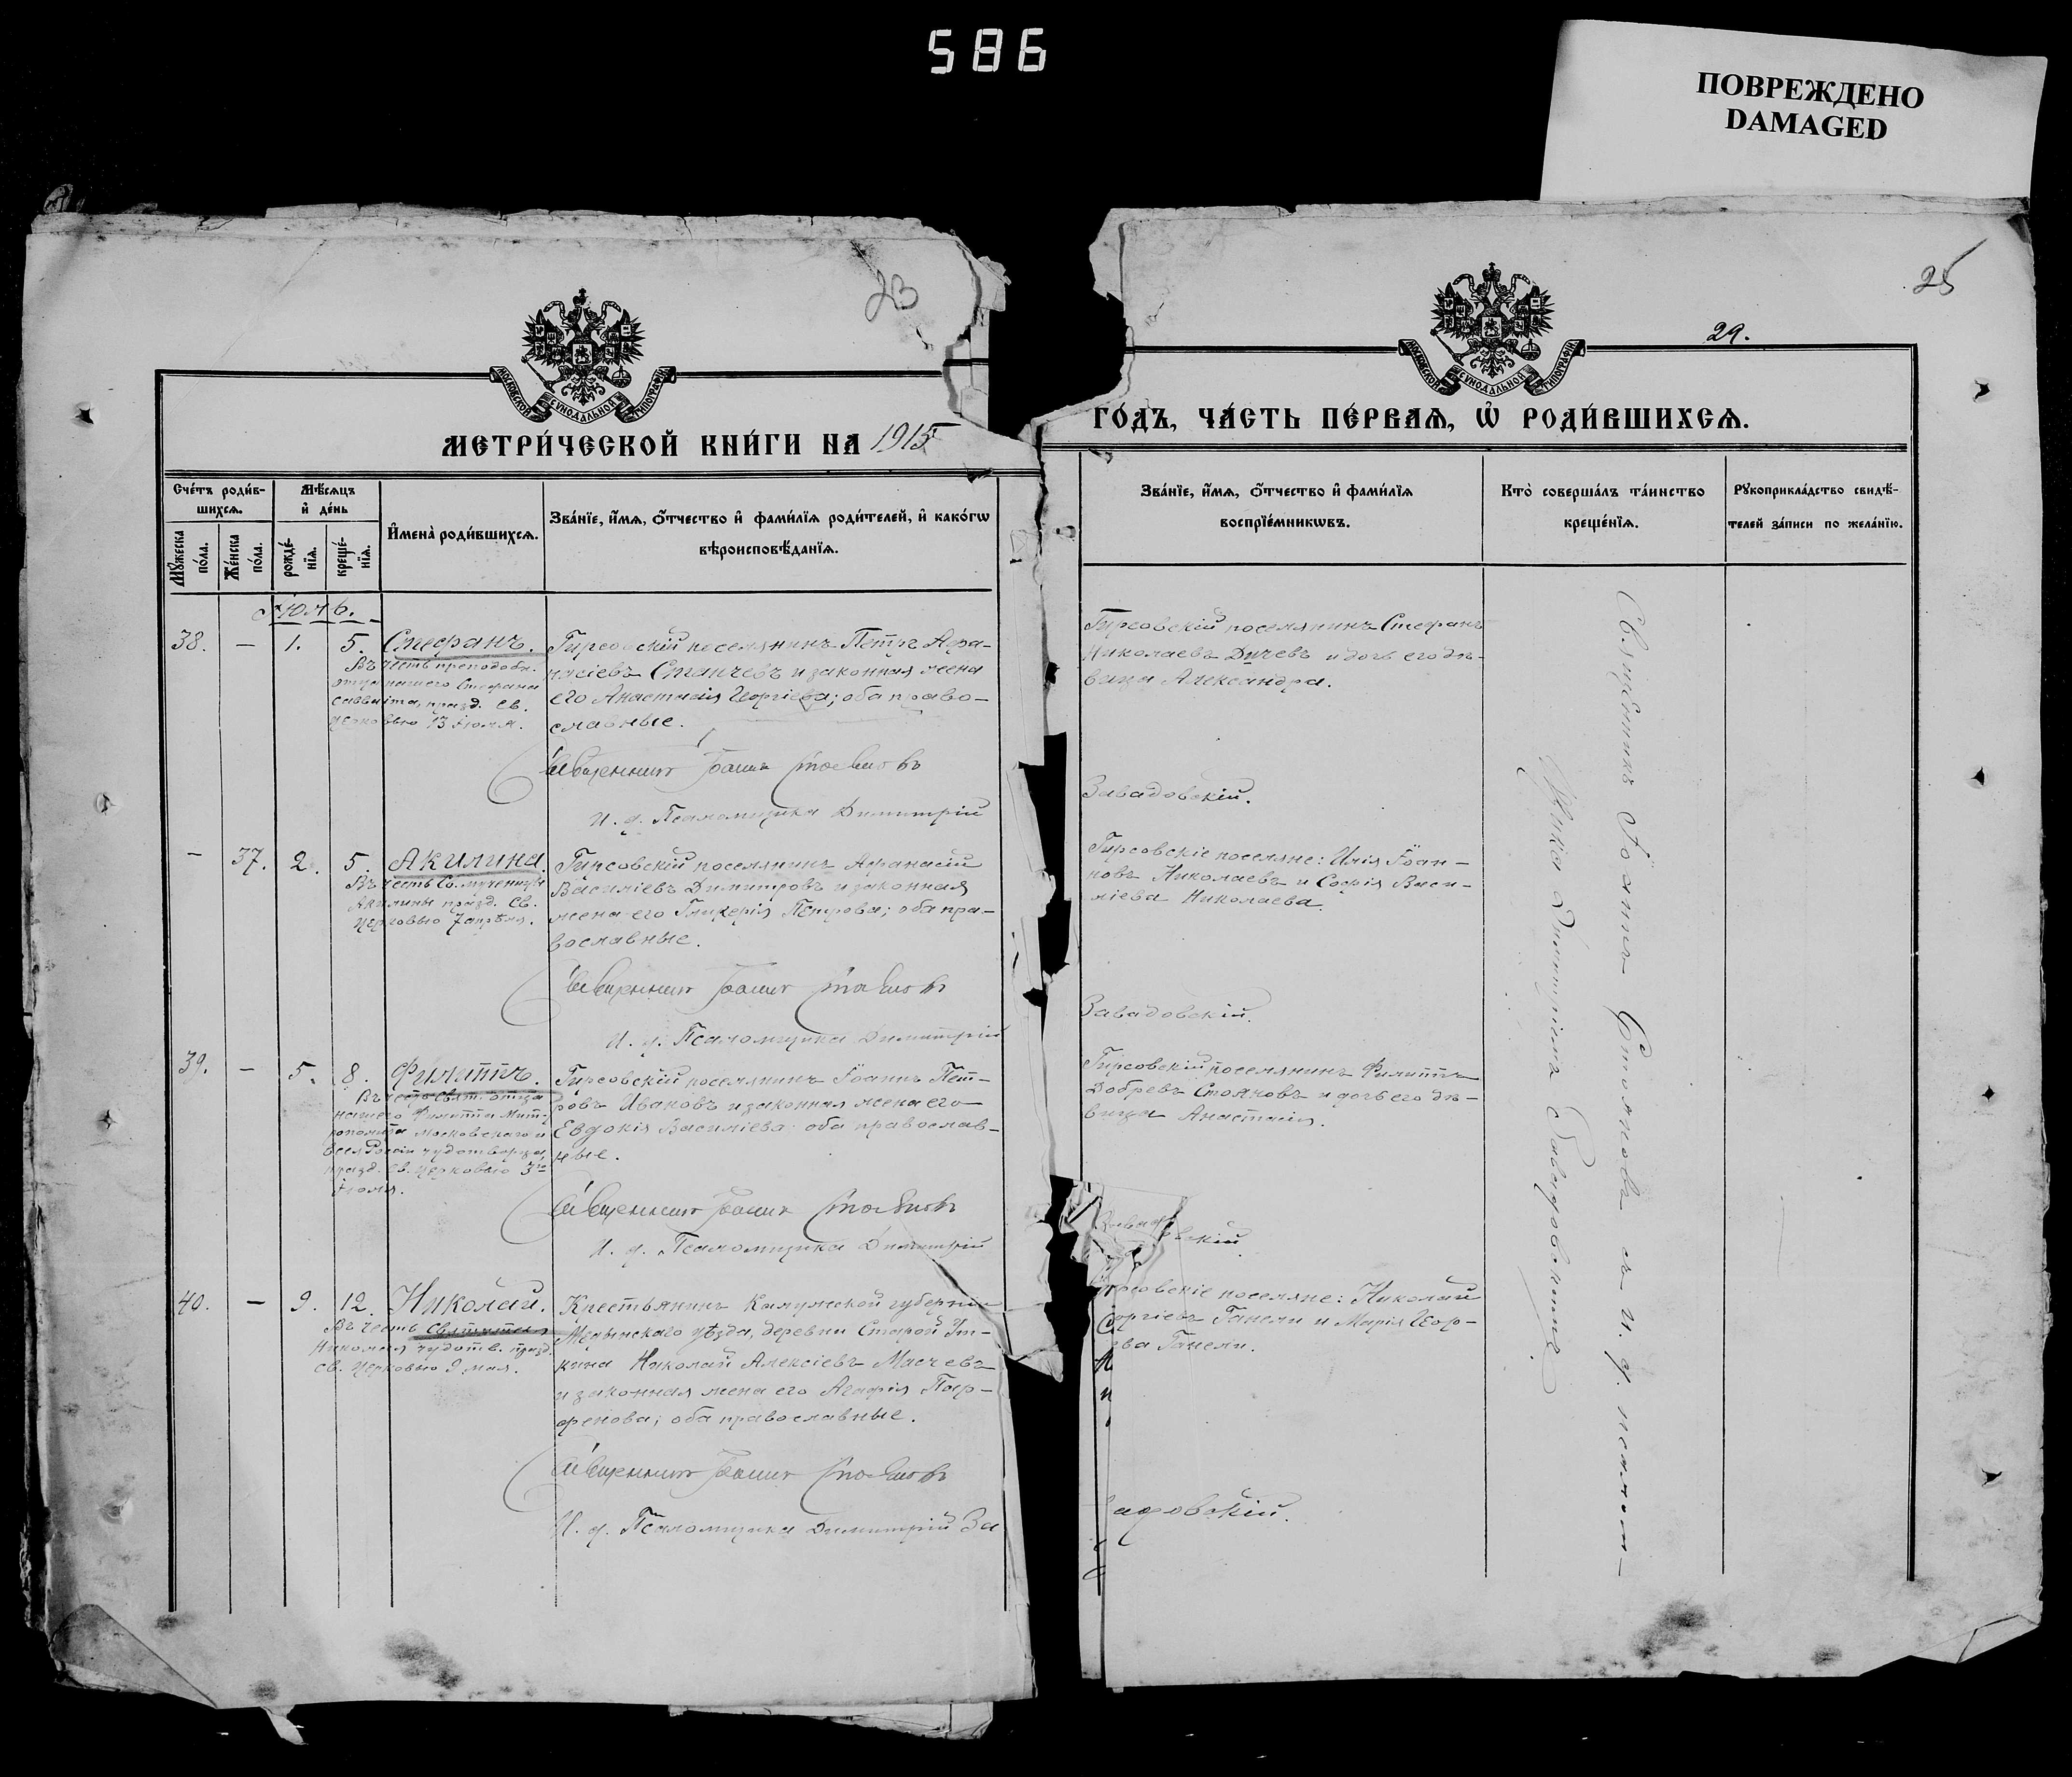 586
ПОВРЕЖДЕНО
DAMAGED
23
25
29.
МОСКОВСКОЙ СѴНОДАЛЬНОЙ ТИПОГРАФІИ
МОСКОВСКОЙ СѴНОДАЛЬНОЙ ТИПОГРАФІИ
МЕТРИ́ЧЕСКОЙ КНИ́ГИ НА 1915
ГО́ДЪ, ЧА́СТЬ ПЕ́РВАѦ, Ѡ҆ РОДИ́ВШИХСѦ.
Сче́тъ роди́в-
шихсѧ.
Мꙋ́жеска по́ла.
Же́нска по́ла.
Мѣ́сѧцъ
и҆ де́нь
рожде́-
нїѧ.
креще́-
нїѧ.
И҆мена̀ роди́вшихсѧ.
Зва́нїе, и҆́мѧ, ѻ҆́тчество и҆ фами́лїѧ роди́телей, и҆ како́гѡ
вѣроисповѣ́данїѧ.
Зва́нїе, и҆́мѧ, ѻ҆́тчество и҆ фами́лїѧ
воспрїе́мникѡвъ.
Кто̀ соверша́лъ та́инство
креще́нїѧ.
Рꙋкоприкла́дство свидѣ́-
телей за́писи по жела́нїю.
Іюль.
38. — 1. 5. Стефанъ.
Въ честь преподобн.
отца нашего Стефана
Савваита, празд. Св.
церковью 13 Іюля.
Гирсовскій поселянинъ Петръ Афа-
насіевъ Станчевъ и законная жена
его Анастасія Георгіева; оба право-
славные.
Священникъ Іоаннъ Стояновъ
И. д. Псаломщика Димитрій
Гирсовскій поселянинъ Стефанъ
Николаевъ Дичевъ и дочь его дѣ-
вица Александра.
Завадовскій.
— 37. 2. 5. Акилина.
Въ честь Св. мученицы
Акилины празд. Св.
церковью 7 апрѣля.
Гирсовскій поселянинъ Афанасій
Василіевъ Димитровъ и законная
жена его Гликерія Петрова; оба пра-
вославные.
Священникъ Іоаннъ Стояновъ
И. д. Псаломщика Димитрій
Гирсовскіе поселяне: Илія Іоан-
новъ Николаевъ и Софія Васи-
ліева Николаева.
Завадовскій.
39. — 5. 8. Филиппъ.
Въ честь Свят. отца
нашего Филиппа Мит-
рополита Московскаго и
всея Россіи чудотворца,
празд. Св. Церковью 3го
Іюля.
Гирсовскій поселянинъ Іоаннъ Пет-
ровъ Ивановъ и законная жена его
Евдокія Василіева: оба православ-
ные.
Священникъ Іоаннъ Стояновъ
И. д. Псаломщика Димитрій
Гирсовскій поселянинъ Филиппъ
Добревъ Стояновъ и дочь его дѣ-
вица Анастасія.
Завад вскій.
40. — 9. 12. Николай.
Въ честь Святителя
Николая чудотв. празд.
Св. Церковью 9 мая.
Крестьянинъ Калужской губерніи
Медынскаго уѣзда, деревни Старой Ут-
кина Николай Алексіевъ Масчевъ
и законная жена его Агафія Пар-
фенова; оба православные.
Священникъ Іоаннъ Стояновъ
И. д. Псаломщика Димитрій За
ирсовскіе поселяне: Николай
Сергіевъ Ганели и Марія Геор-
ева Ганели.
адовскій.
Священникъ Іоаннъ Стояновъ съ и. д. псалом-
щика Димитріемъ Завадовскимъ.